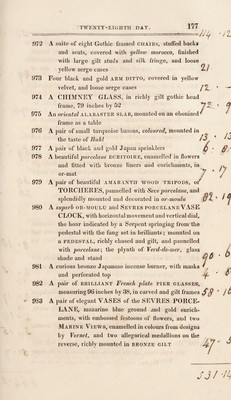 TWENTY-EIGHTH DAY. 177
972 A suite of eight Gothic framed CHAIRS, stuffed backs
and seats, covered with yellow morocco, finished
with large gilt studs and silk fringe, and loose
yellow serge cases 21
973 Four black and gold ARM DITTO, covered in yellow
velvet, and loose serge cases 12
974 A CHIMNEY GLASS, in richly gilt gothic head
frame, 79 inches by 52
975 An oriental ALABASTER SLAB, mounted on an ebonized
frame as a table
976 A pair of small turquoise banons, coloured, mounted in
the taste of Buhl
977 A pair of black and gold Japan sprinklers
978 A beautiful porcelane ECRITOIRE, enamelled in flowers
and fitted with bronze liners and enrichments, in
or-mat
979 A pair of beautiful AMARANTH WOOD TRIPODS, or
TORCHERES, pannelled with Sevr porcelane, and
splendidly mounted and decorated in or-moulu
980 A superb OR-MOULU and SEVRES PORCELANE VASE
CLOCK, with horizontal movement and vertical dial,
the hour indicated by a Serpent springing from the
pedestal with the fang set in brilliants; mounted on
a PEDESTAL, richly chased and gilt, and pannelled
with porcelane; the plynth of Verd-de-mer, glass
shade and stand
981 A curious bronze Japanese incense burner, with masks
and perforated top
982 A pair of BRILLIANT French plate PIER GLASSES,
measuring 96 inches by 38, in carved and gilt frames
983 A pair of elegant VASES of the SEVRES PORCE-
LANE, mazarine blue ground and gold enrich-
ments, with embossed festoons of flowers, and two
MARINE VIEWS, enamelled in colours from designs
by Vernet, and two allegorical medallions on the
reverse, richly mounted in BRONZE GILT